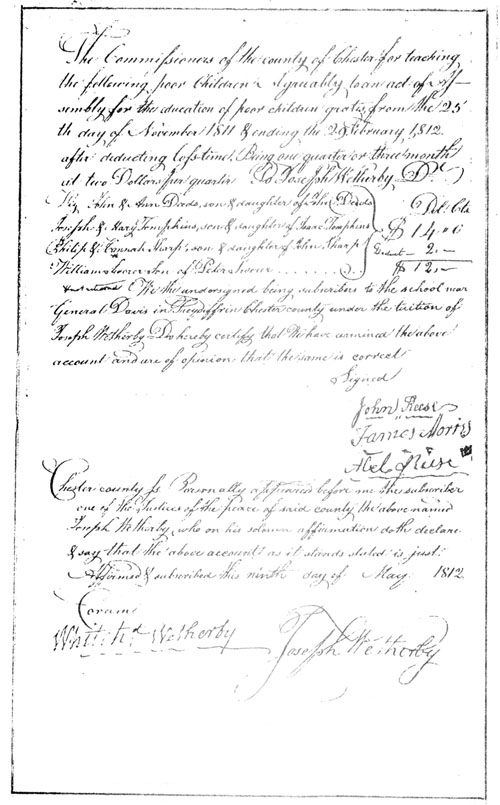 The Commissioners of the county of Chester for teaching
the following poor Children Agreeably to an act of As-
sembly for the education of poor children gratis, from the 25
th day of November 1811 & ending the 29 February, 1812
after deducting loss time, Being one quarter or three months
at two Dollars per quarter To Joseph Wetherby Dr.
Viz John & Ann Dads, son & daughter of John Dads Dol. Cts
Joseph & Mary Tompkins, son & daughter of Isaac Tompkins $ 14 " 0
Philip & Hannah Sharp, son & daughter of John Sharp Deduct - 2. -
William son of $ 12, -
We the undersigned being subscribers to the school near
General Davis in Tredyffrin Chester county under the tuition of
Joseph Wetherby Do hereby certify that We have examined the above
account and are of opinion that the same is correct
Signed
John Reese
James Morris
Abel Reese
Chester county Ss Personally appeared before me the subscriber
one of the Justices of the peace of said county the above named
Joseph Wetherby, who on his solemn affirmation doth declare
& say that the above account as it stands stated is just.
Affirmed & subscribed this ninth day of May 1812
Coram
Whitehd Wetherby Joseph Wetherby